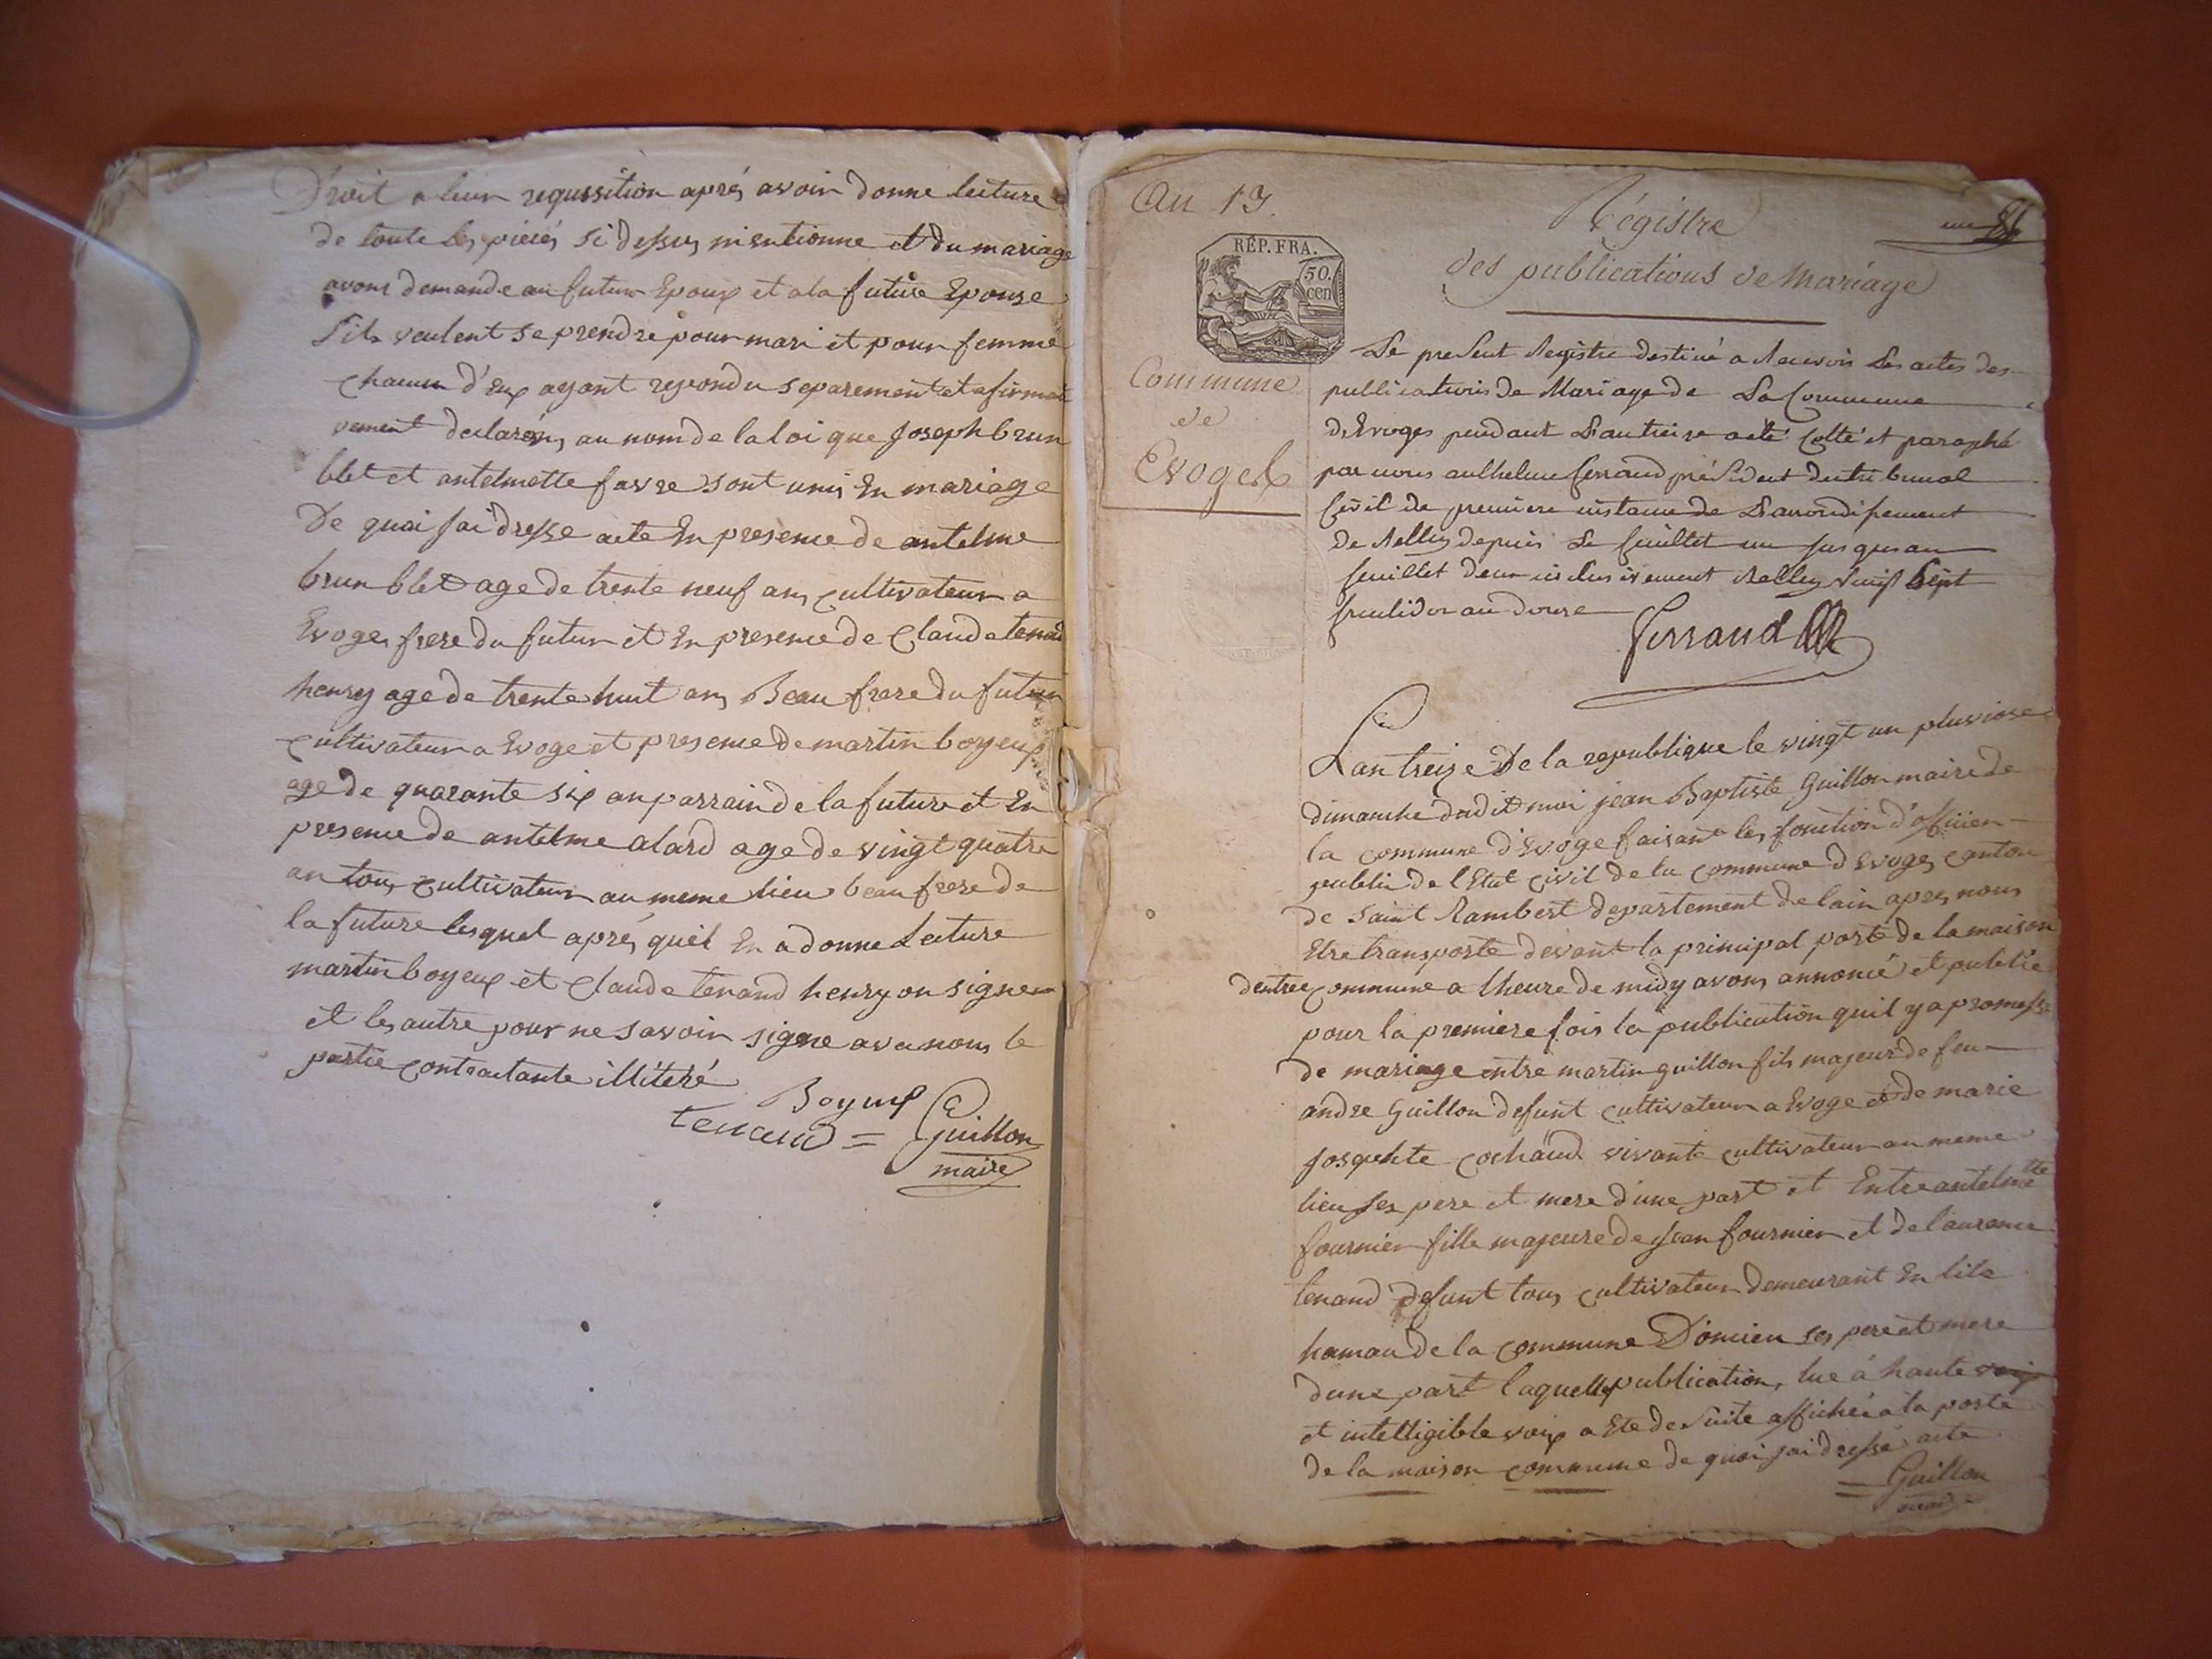 Droit a leur requssition aprés avoir donne lecture
de toute les pieces si dessus mentionne et du mariage
avons demande au futur Epoux et a la future Epouse
s'ils veulent se prendre pour mari et pour femme
chacun d'Eux ayant repondu separement et afirmati
vement declarons au nom de la loi que joseph brun
blet et antelmette favre sont unis En mariage
De quoi jai dresse acte En presence de antelme
brun blet age de trente neuf ans cultivateur a
Evoges frere du futur et En presence de Claude tenand
henry age de trente huit ans Beau frere du futur
cultivateur a Evoge et presence de martin boyeux
age de quarante six an parrain de la future et En
presence de antelme alard age de vingt quatre
an tous cultivateur au meme lieu beau frere de
la future lesquel aprés quil En a donne Lecture
martin boyeux et Claude tenand henry on signe
et les autre pour ne savoir signe avec nous le
partie contractante illiteré
Boyeux
tenand = Guillon
maire
An 13.
RÉP. FRA.
50.
cen
Commune
de
Evoges
Régistre
un
des publications de Mariage
Le present Registre destiné a Recevoir Les actes des
publications de Mariage de La Commune
D'Evoges pendant L'an treize a été Cotté et paraphé
par nous anthelme ferrand président du tribunal
Civil de premiere instance de L'arrondissement
De Belley depuis Le feuillet un jusques au
feuillet deux inclusivement Belley vingt Sept
fructidor an douze
ferrand
L'an treize De la republique le vingt un pluviose
dimanche dudit moi jean Baptiste Guillon maire de
la commune d'Evoge faisant les fonction d'officier
public de l'Etat civil de la commune d'Evoges canton
de saint Rambert departement de lain apres nous
Etre transporte devant la principal porte de la maison
dentree commune a lheure de midy avons annoncé et publie
pour la premiere fois la publication quil y a promesse
de mariage entre martin guillon fils majeur de feu
andre Guillon defunt cultivateur a Evoge et de marie
josephte cochaud vivante cultivateur au meme
lieu ses pere et mere d'une part et Entre antelmette
fournier fille majeure de jean fournier et de laurance
tenand defunt tous cultivateur demeurant En lile
hamau de la commune D'oncieu ses pere et mere
dune part laquelle publication, lue à haute voix
et intelligible voix a Ete de suite affichée a la porte
de la maison commune de quoi jai dressé acte
= Guillon
maire